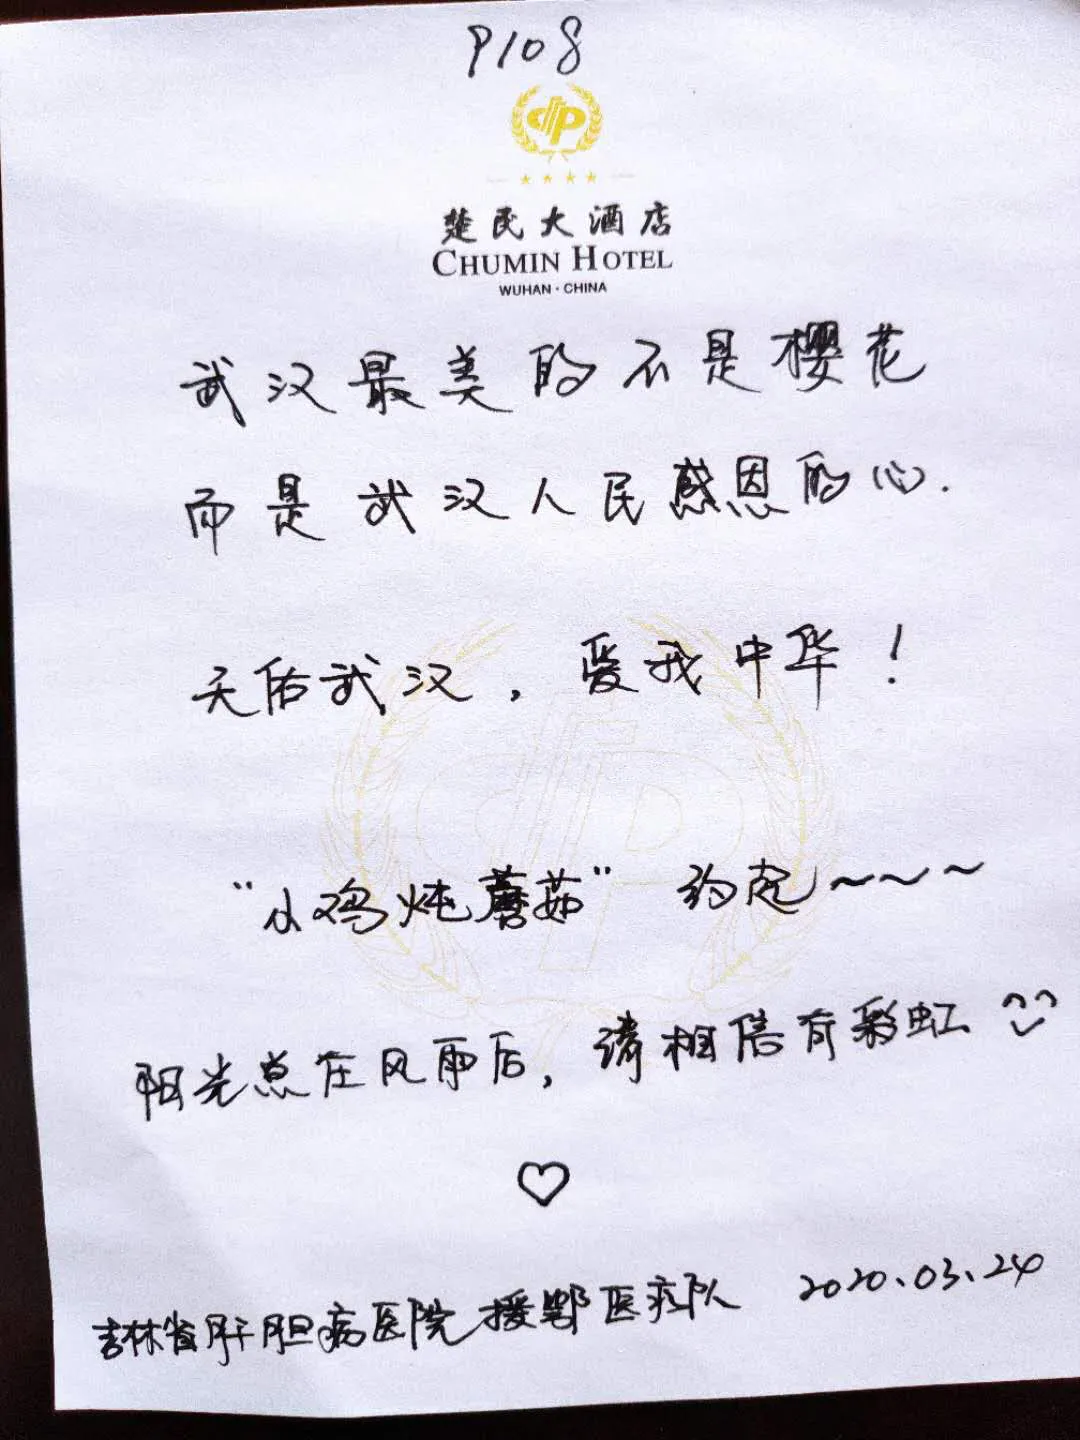 P108
楚民大酒店
CHUMIN HOTEL
WUHAN·CHINA
武汉最美的不是樱花
而是武汉人民感恩的心.
天佑武汉,爱我中华!
“小鸡炖蘑茹”约起~~~
阳光总在风雨后,请相信有彩虹
吉林省肝胆病医院援鄂医疗队 2020.03.24